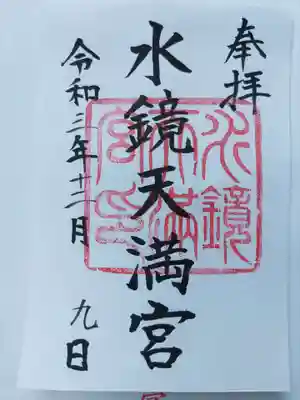 奉拝
水鏡天満宮
令和三年十二月 九日
水鏡
天満
宮印